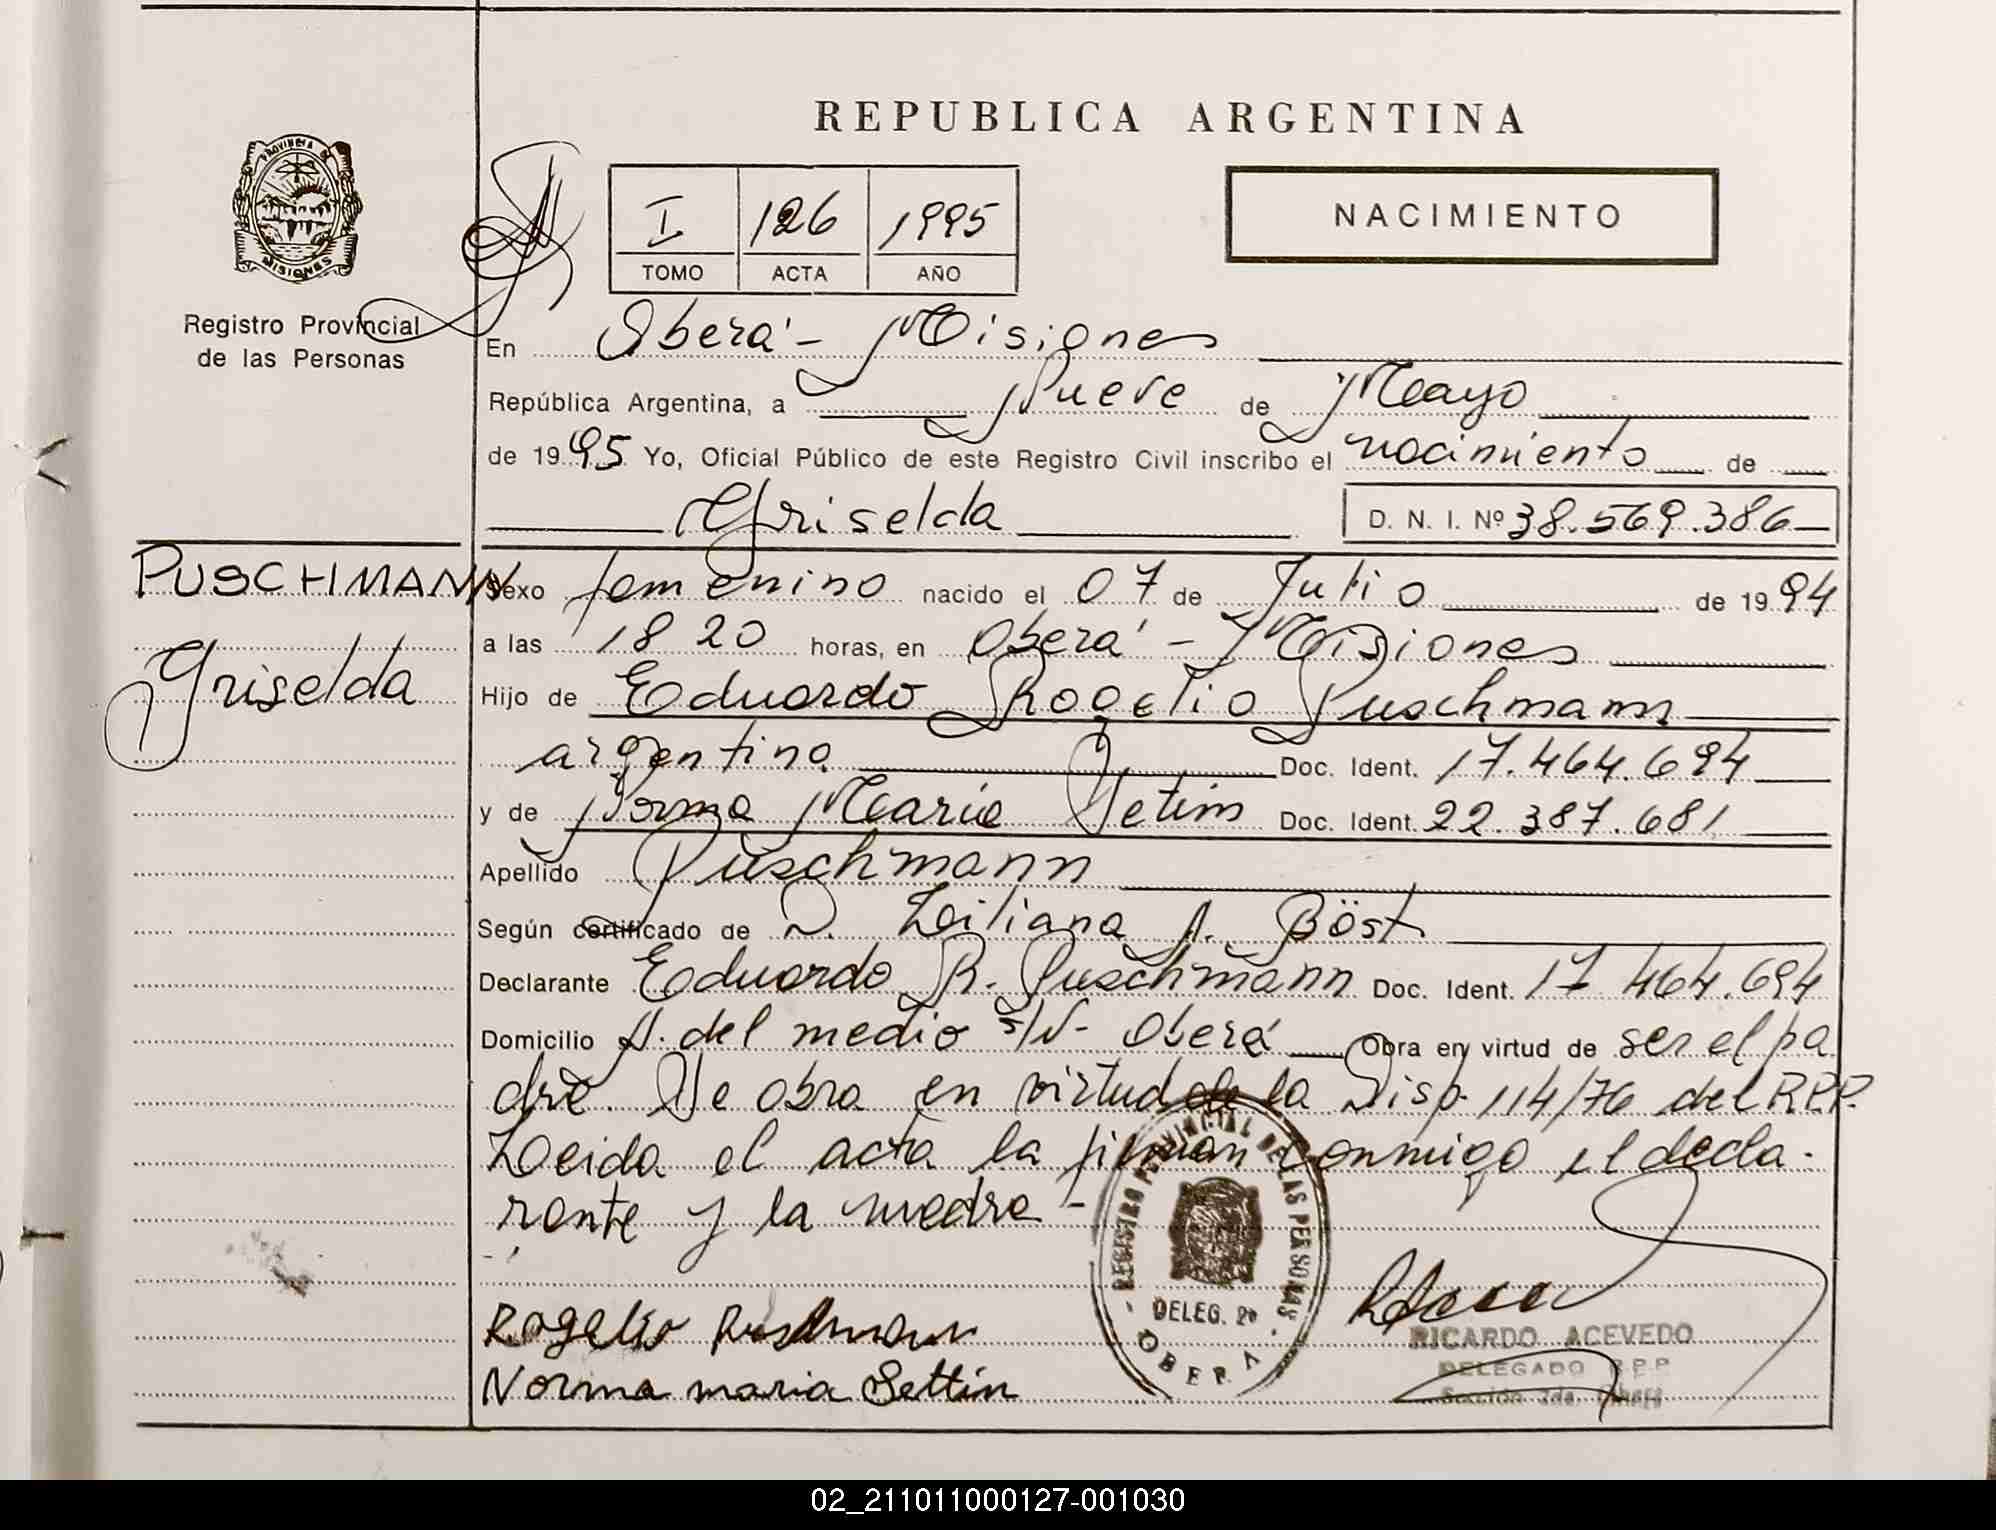 REPUBLICA ARGENTINA
PROVINCIA DE
MISIONES
Registro Provincial
de las Personas
I 126 1995
TOMO ACTA AÑO
NACIMIENTO
En Oberá - Misiones
República Argentina, a Nueve de Mayo
de 1995 Yo, Oficial Público de este Registro Civil inscribo el nacimiento de
Griselda D. N. I. Nº 38.569.386
PUSCHMANN
Griselda
Sexo femenino nacido el 07 de Julio de 1994
a las 18 20 horas, en Oberá - Misiones
Hijo de Eduardo Rogelio Puschmann
argentino Doc. Ident. 17.464.694
y de Norma María Setim Doc. Ident. 22.387.681
Apellido Puschmann
Según certificado de D. Liliana A. Böst
Declarante Eduardo R. Puschmann Doc. Ident. 17 464.694
Domicilio A. del medio s/N - Oberá Obra en virtud de ser el pa
dre. Se obra en virtud de la Disp. 114/76 del R.P.P.
Leida el acta la firman conmigo el decla-
rante y la madre -
REGISTRO PROVINCIAL DE LAS PERSONAS
DELEG. 2ª
OBERA
Rogelio Puschmann
Norma maria Settin
RICARDO ACEVEDO
DELEGADO R.P.P.
Sección 2da. Oberá
02_211011000127-001030